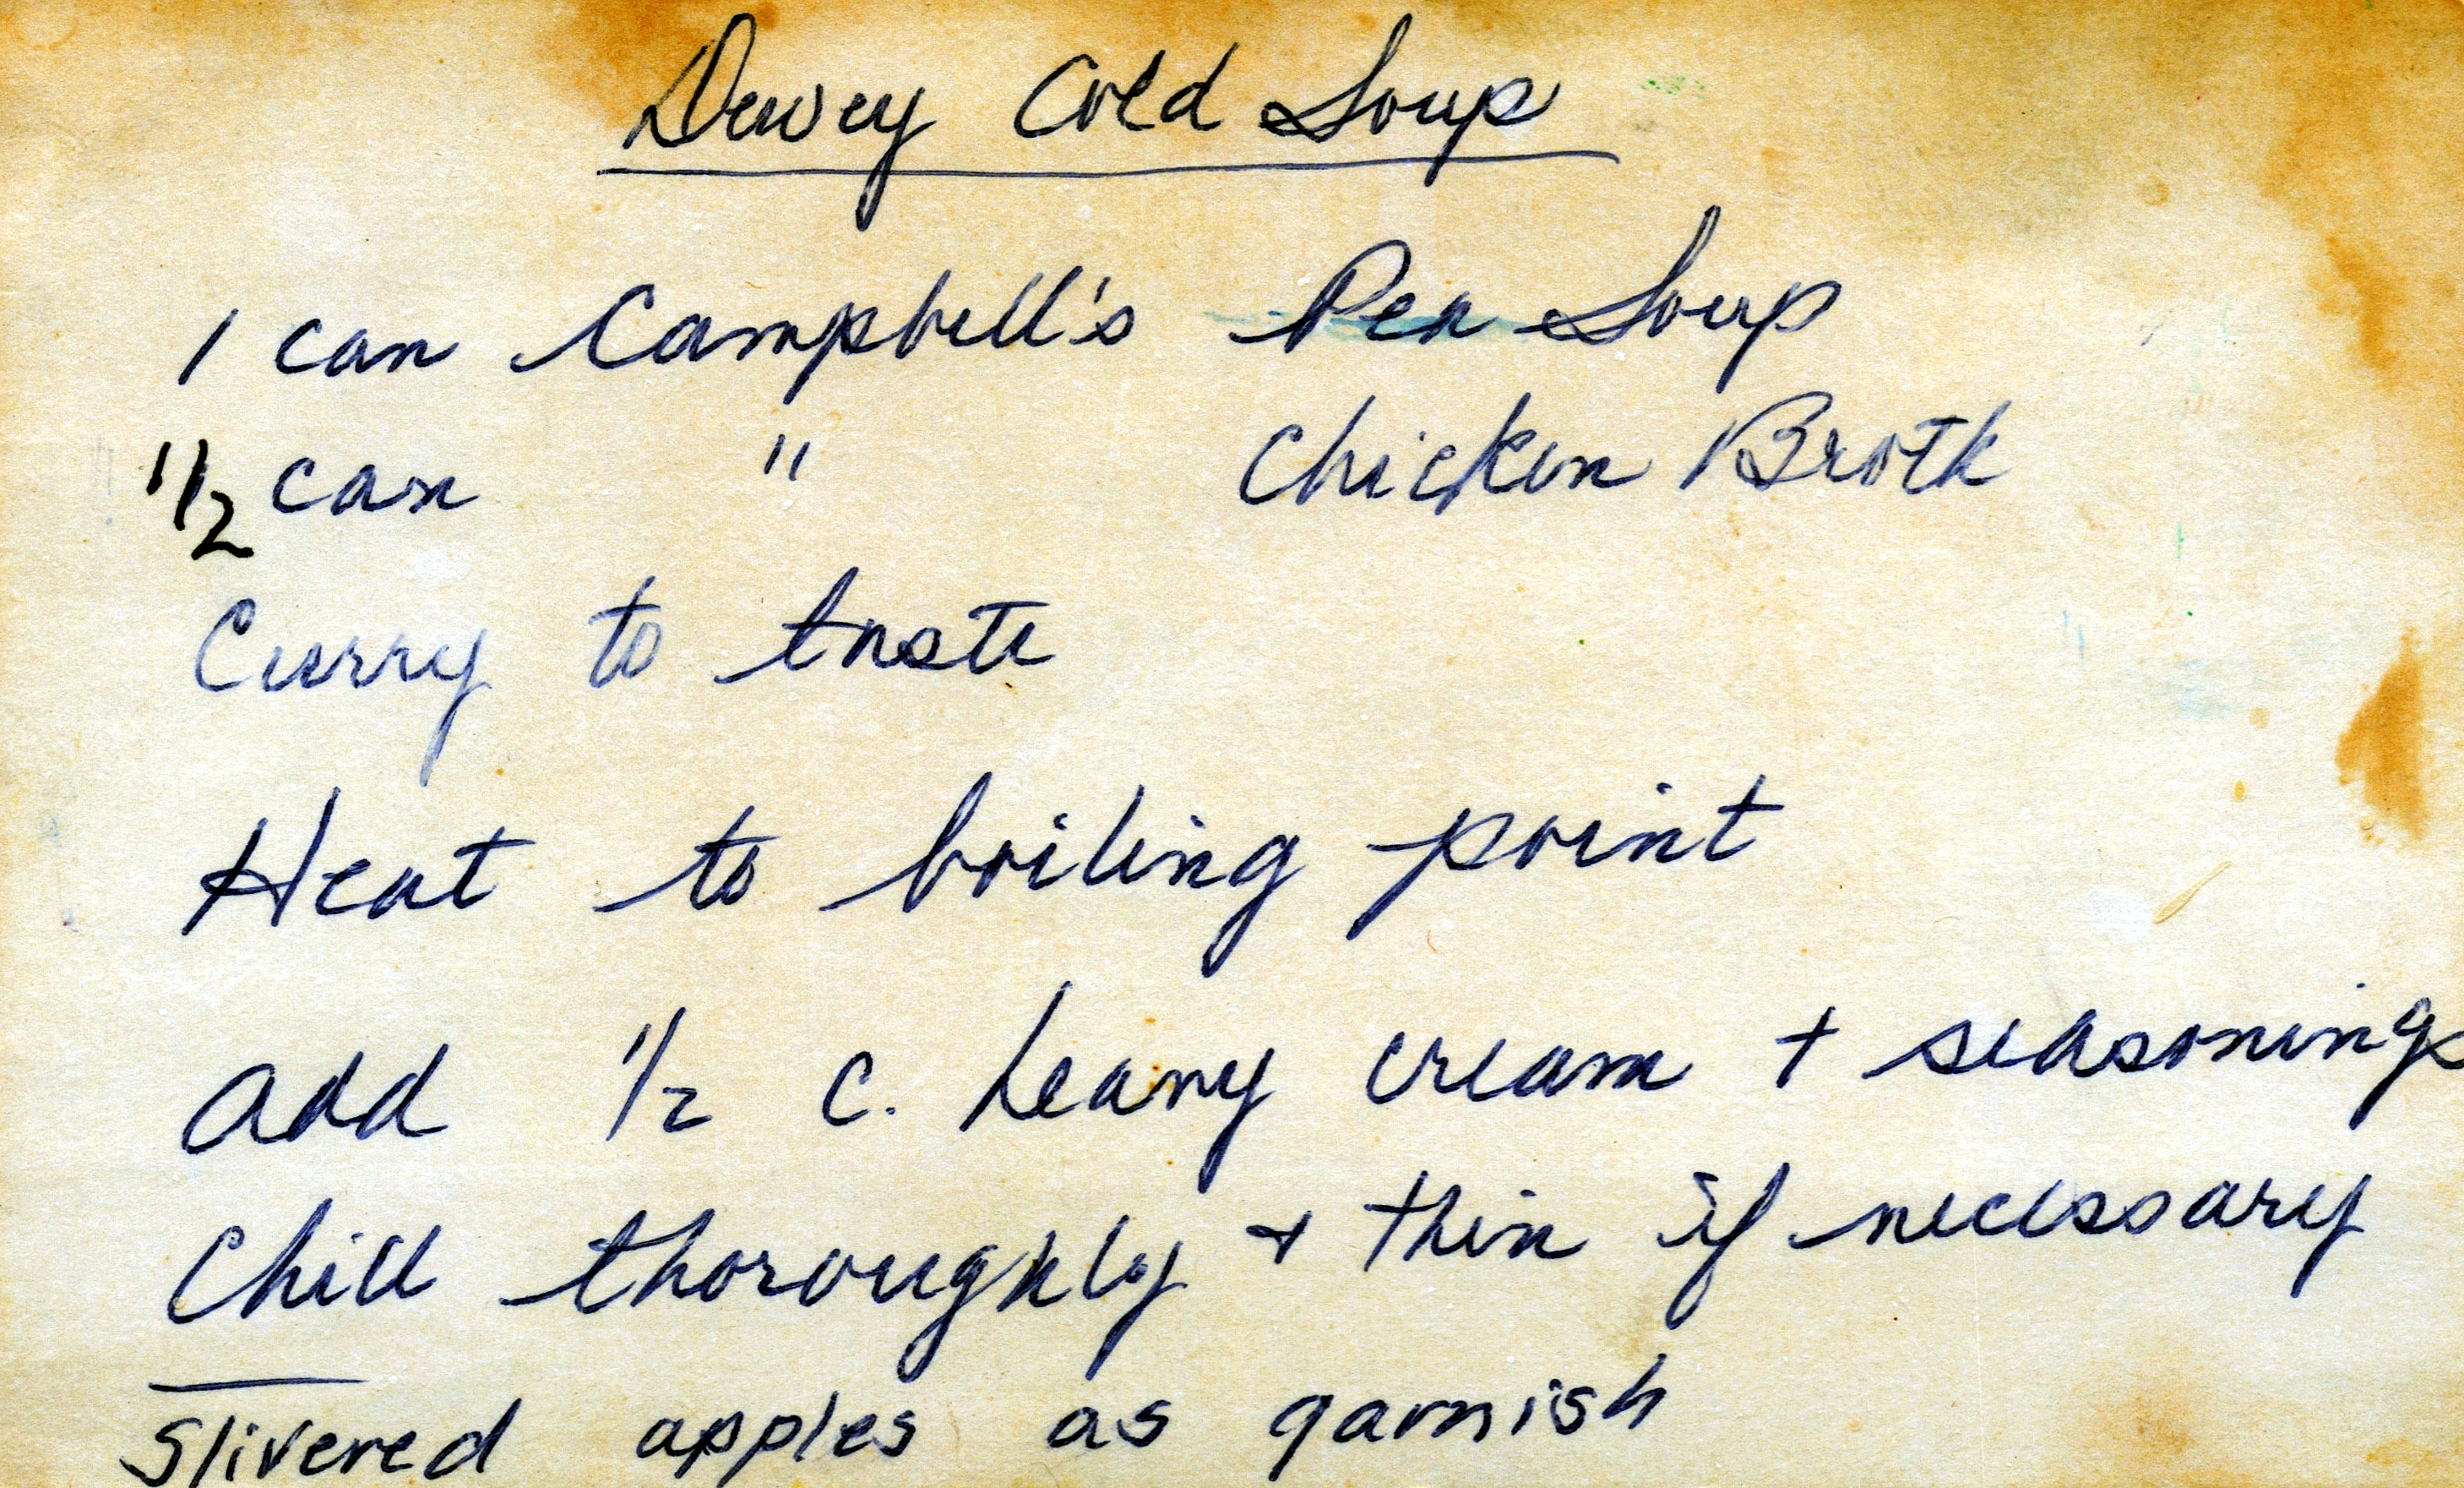 Dewey Cold Soup
1 can Campbell's Pea Soup
1 1/2 can " Chicken Broth
Curry to taste
Heat to boiling point
Add 1/2 c. heavy cream + seasonings
Chill thoroughly + thin if necessary
Slivered apples as garnish